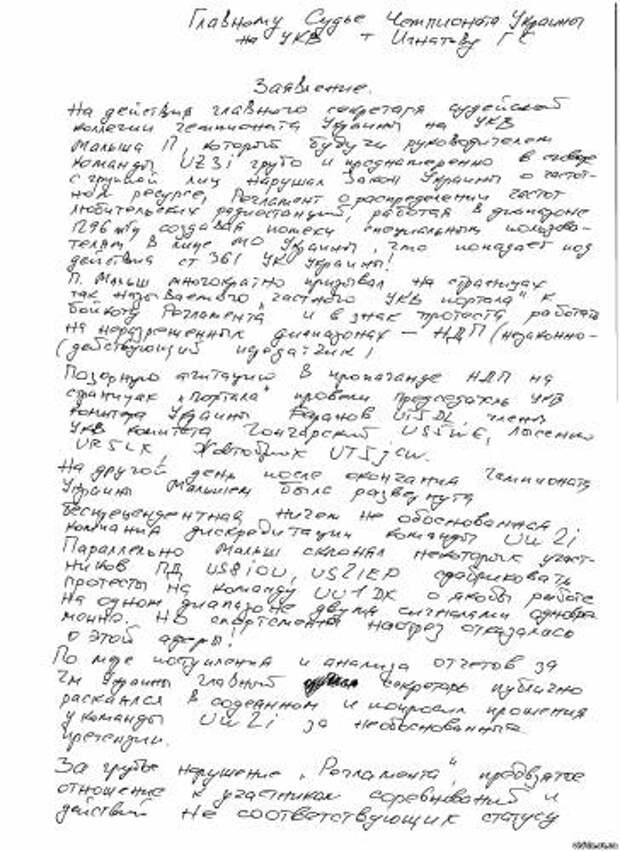 Главному Судье Чемпионата Украины
на УКВ т Игнатову Г С
Заявление.
На действия главного секретаря судейской
коллегии чемпионата Украины на УКВ
Малыша П, который будучи руководителем
команды UZ3i грубо и преднамеренно в сговоре
с группой лиц нарушал Закон Украины о частот-
ном ресурсе, Регламент о распределении частот
любительских радиостанций, работая в диапазоне
1296 мгц создавая помеху специальным пользова-
телям в лице МО Украины, что попадает под
действия ст 361 УК Украины!
П. Малыш многократно призывал на страницах
так называемого "частного УКВ портала" к
бойкоту Регламента и в знак протеста работать
на неразрешенных диапазонах — НДП (незаконно-
(действующий передатчик!
Позорную агитацию в пропаганде НДП на
страницах "портала" провели председатель УКВ
комитета Украины Баранов UT5DL, члены
УКВ комитета Гончарский US5WE, Лысенко
UR5LX, Жовтобрюх UT5JCW.
На другой день после окончания Чемпионата
Украины Малышем была развернута
беспрецендентная ничем не обоснованная
компания дискредитации команды UW2i
Параллельно Малыш склонял некоторых участ-
ников ПД US8IOU, US2IEP сфабриковать
протесты на команду UU1DX о якобы работе
на одном диапазоне двумя сигналами одновре
менно. Но спортсмены наотрез отказалась
о этой аферы!
По мере поступления и анализа отчетов за
Чм Украины главный секретарь публично
раскаялся в содеянном и попросил прошения
у команды UW2i за необоснованные
претензии.
За грубые нарушение "Регламента", предвзятое
отношение к участникам соревнований и
действий не соответствующих статусу